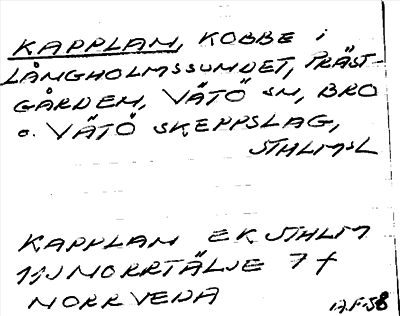 KAPPLAN, KOBBE i
LÅNGHOLMSSUNDET, PRÄST-
GÅRDEN, VÄTÖ SN, BRO
o. VÄTÖ SKEPPSLAG,
STHLMSL
KAPPLAN EK STHLM
11J NORRTÄLJE 7 f
NORRVEDA
17.F.58